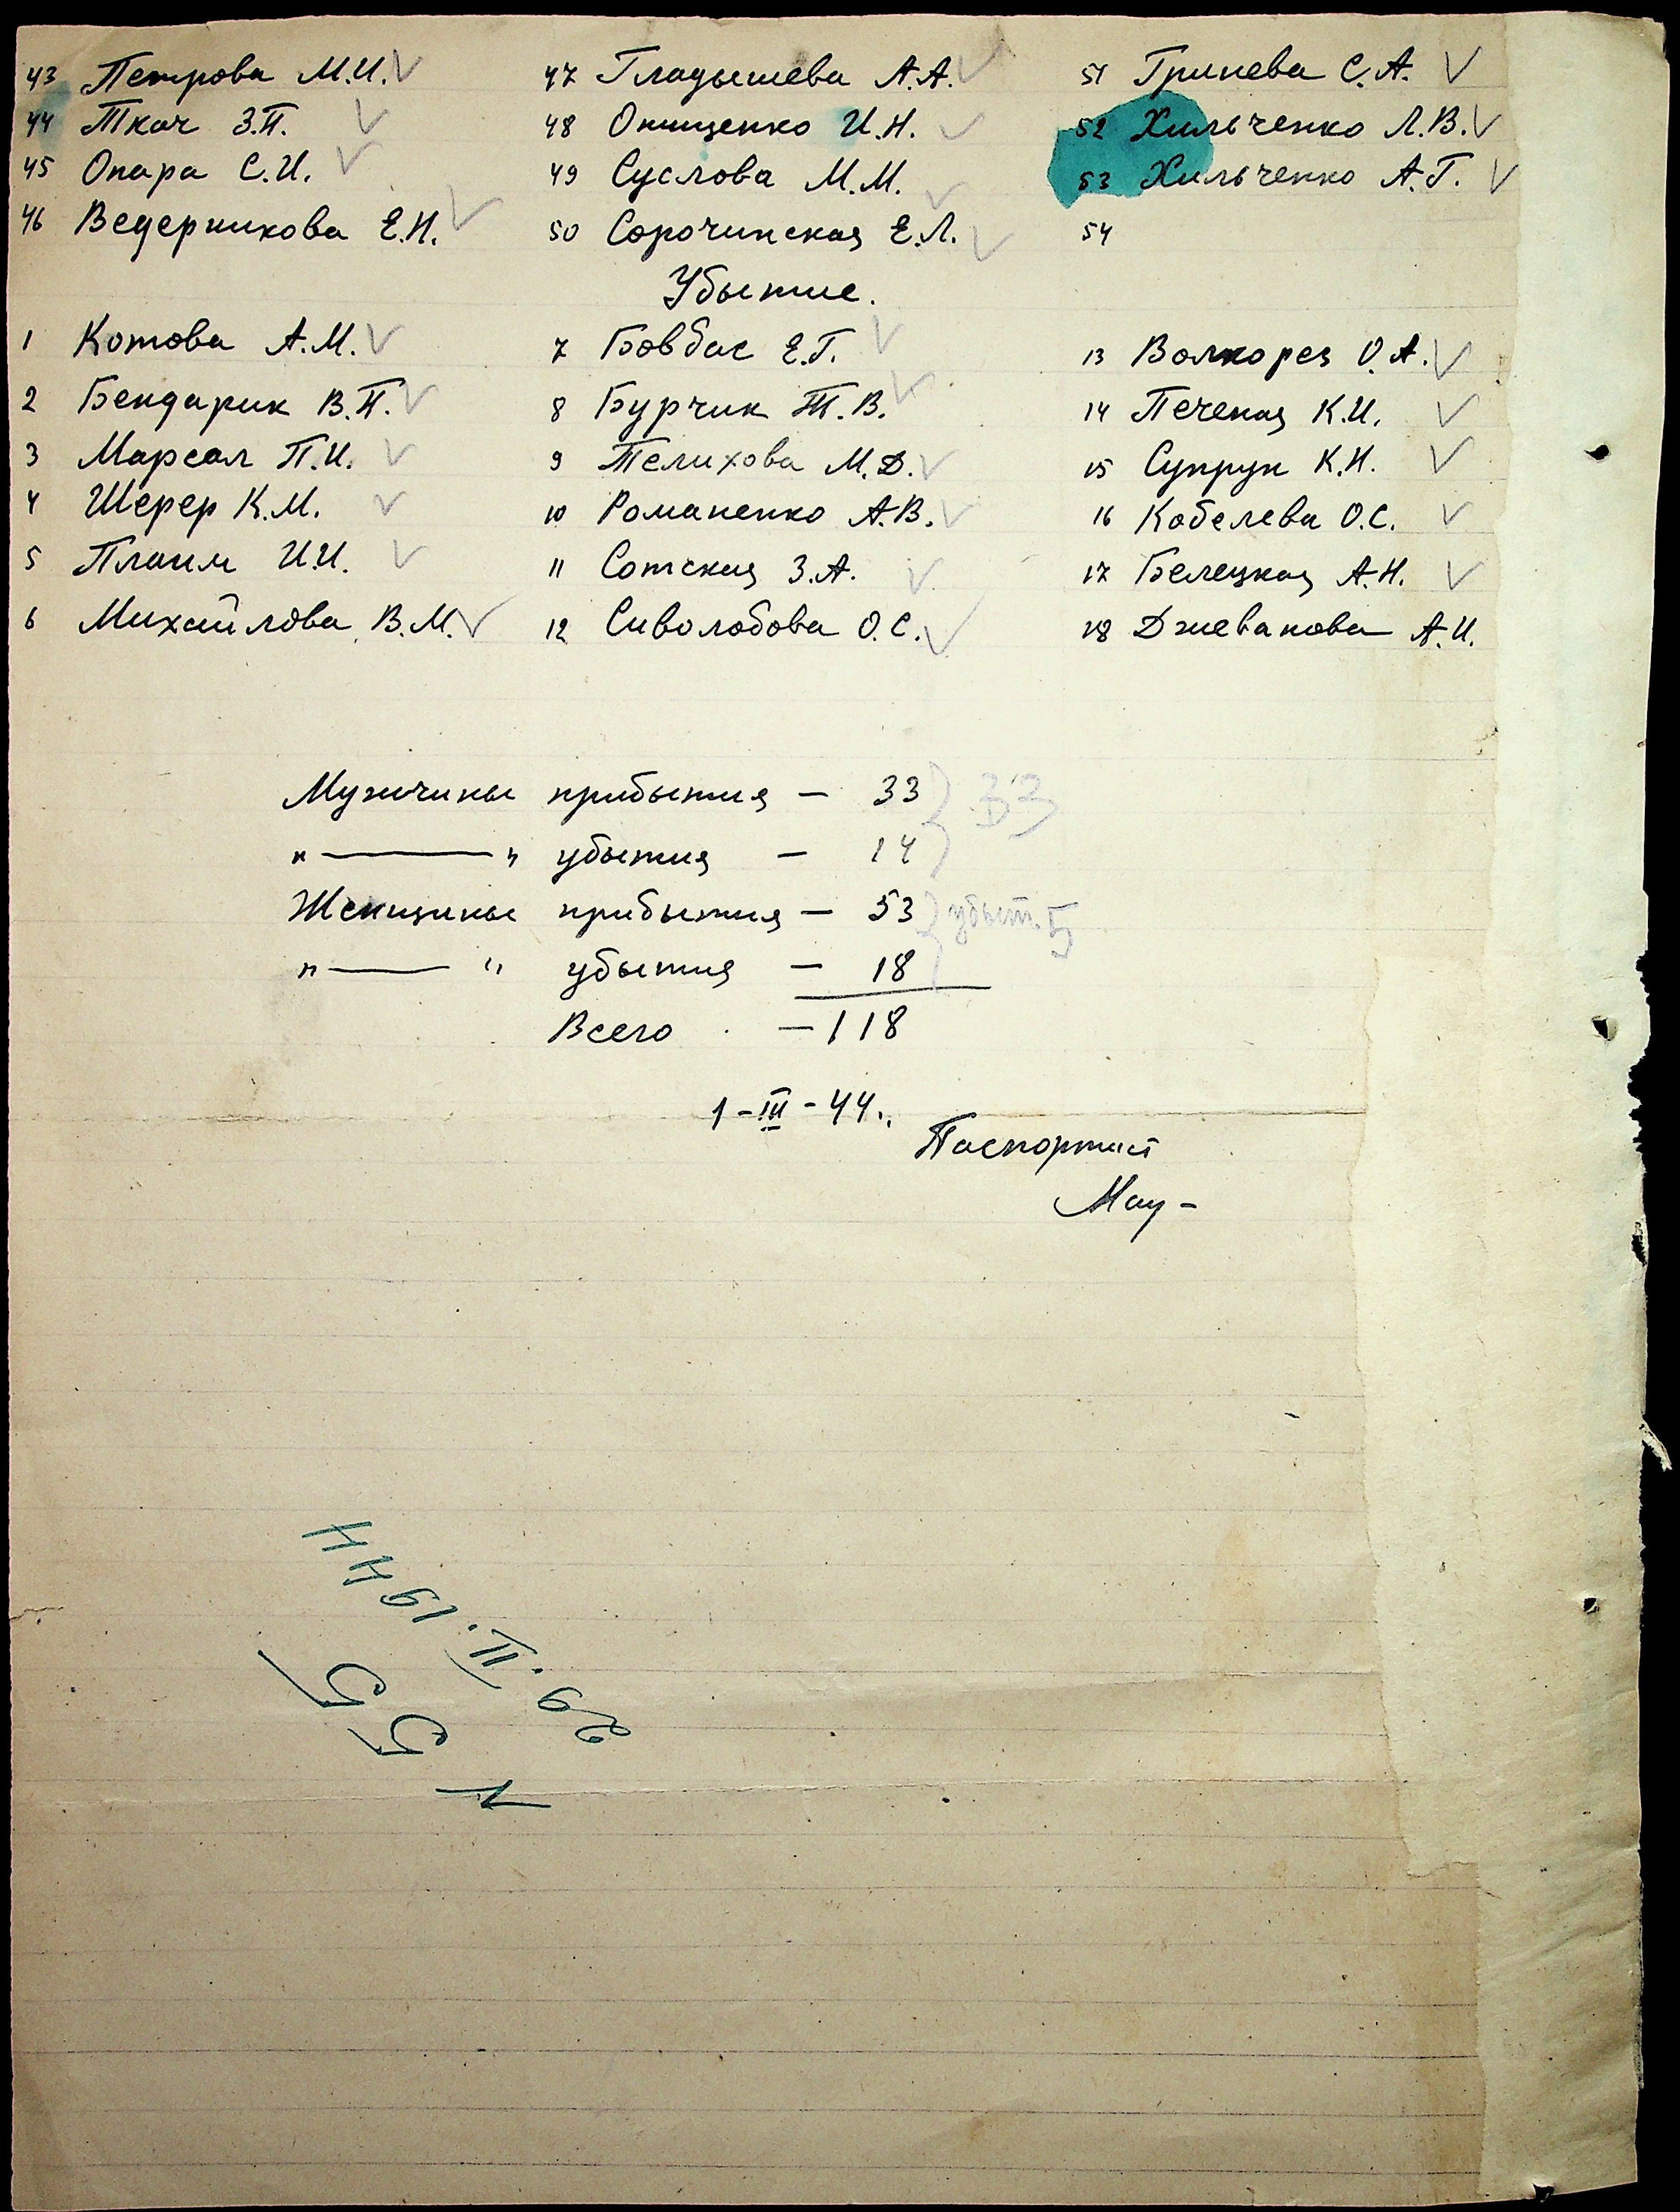 43 Петрова М.И. V 47 Гладышева А.А. V 51 Гринева С.А. V
44 Ткач З.П. V 48 Онищенко И.Н. V 52 Хильченко Л.В. V
45 Опара С.И. V 49 Суслова М.М. V 53 Хильченко А.Г. V
46 Ведерникова Е.Н. V 50 Сорочинская Е.Л. V 54
Убытие.
1 Котова А.М. V 7 Бовбас Е.Г. V 13 Волкорез О.А. V
2 Бендарик В.П. V 8 Бурчик Т.В. V 14 Печеная К.И. V
3 Марсал П.И. V 9 Телихова М.Д. V 15 Супрун К.Н. V
4 Шерер К.М. V 10 Романенко А.В. V 16 Кобелева О.С. V
5 Плаим И.И. V 11 Сотская З.А. V 17 Белецкая А.Н. V
6 Михайлова В.М. V 12 Сиволобова О.С. V 18 Дживанова А.И.
Мужчины прибытия – 33 } 33
"———" убытия – 14
Женщины прибытия – 53 } убыт. 5
"———" убытия – 18
Всего – 118
1-III-44.
Паспортист
29.II.1944